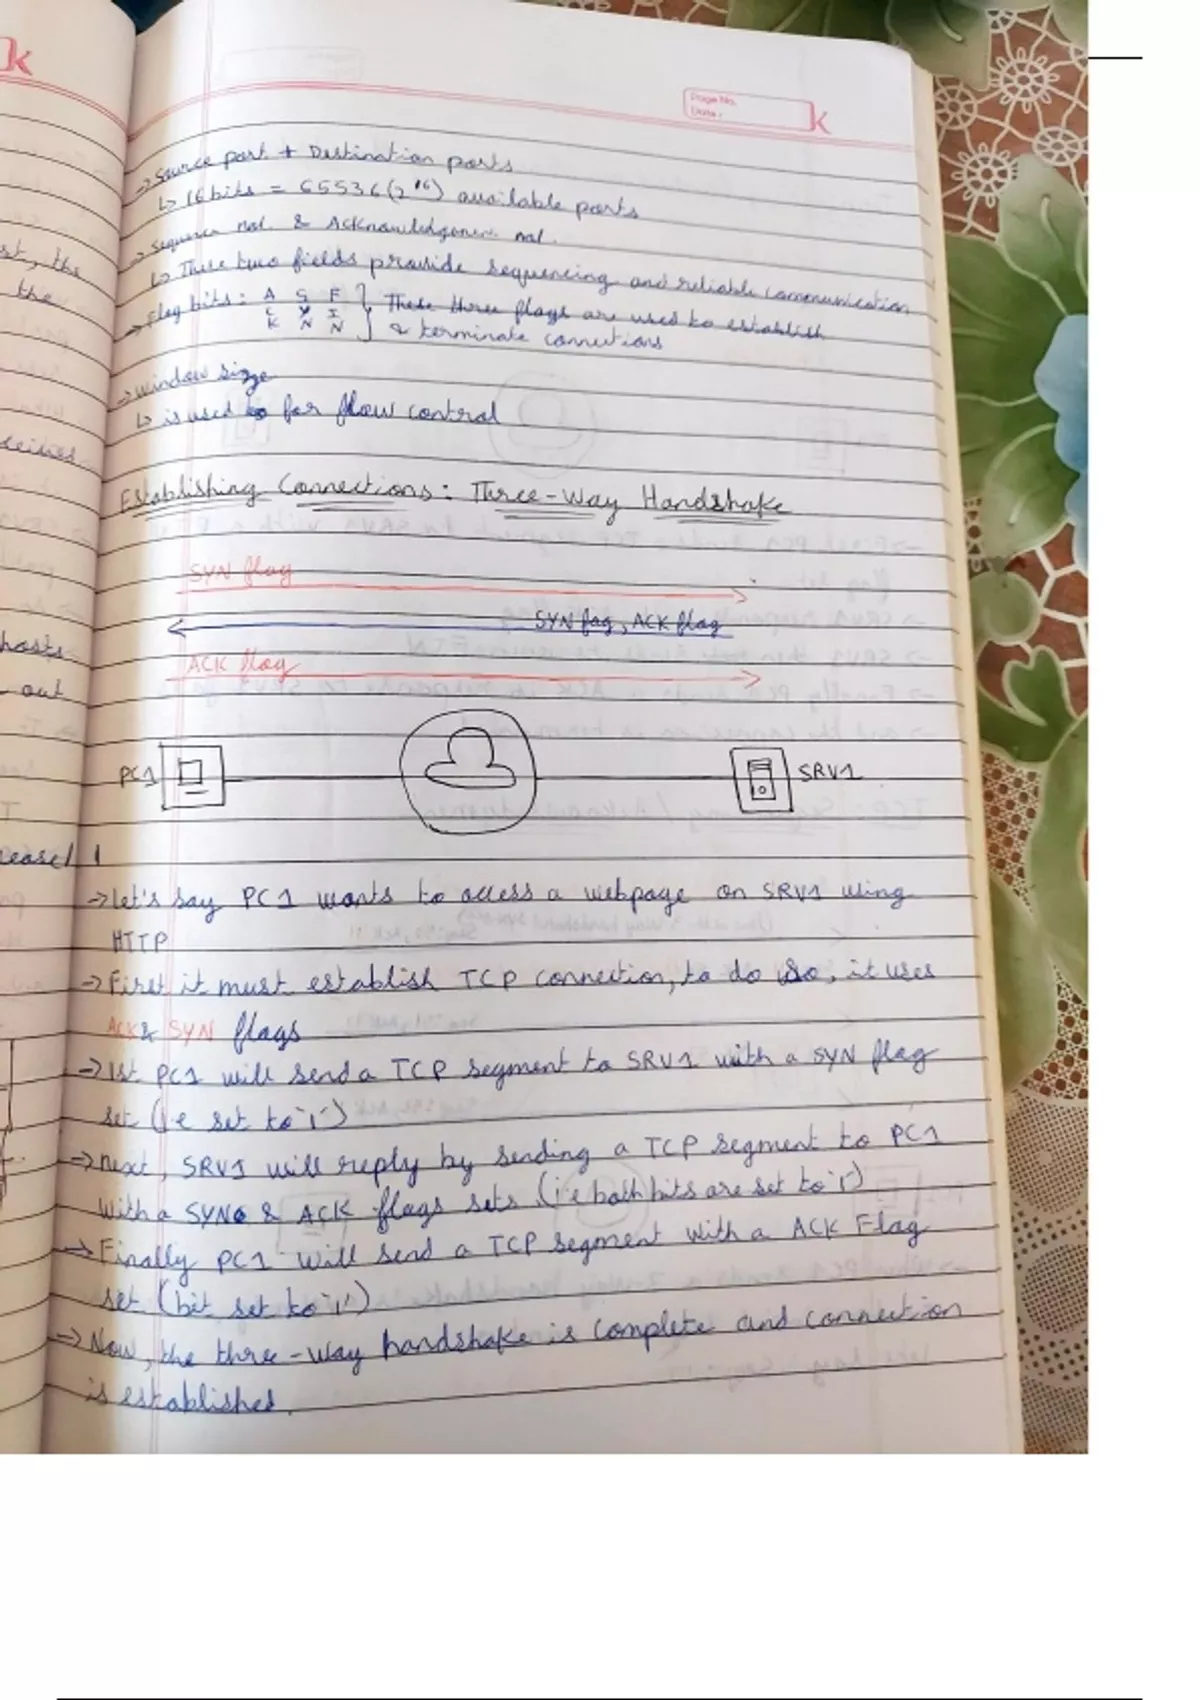 k
Page No.
Date :
k
→ Source port + Destination ports
↳ 16 bits = 65536 (2^16) available ports
→ Sequence no. & Acknowledgement no.
↳ These two fields provide sequencing and reliable communication
→ Flag bits: ACK SYN FIN } These three flags are used to establish
& terminate connections
→ window size
↳ is used to for flow control
Establishing Connections: Three-Way Handshake
SYN flag
SYN fag, ACK flag
ACK flag
PC1
SRV1
→ let's say PC1 wants to access a webpage on SRV1 using
HTTP
→ First it must establish TCP connection, to do so, it uses
ACK & SYN flags
→ 1st PC1 will send a TCP segment to SRV1 with a SYN flag
set (i.e set to '1')
→ next, SRV1 will reply by sending a TCP segment to PC1
with a SYN & ACK flags sets (i.e both bits are set to '1')
→ Finally PC1 will send a TCP segment with a ACK Flag
set (bit set to '1')
→ Now, the three-way handshake is complete and connection
is established.
st, the
the
hosts
out